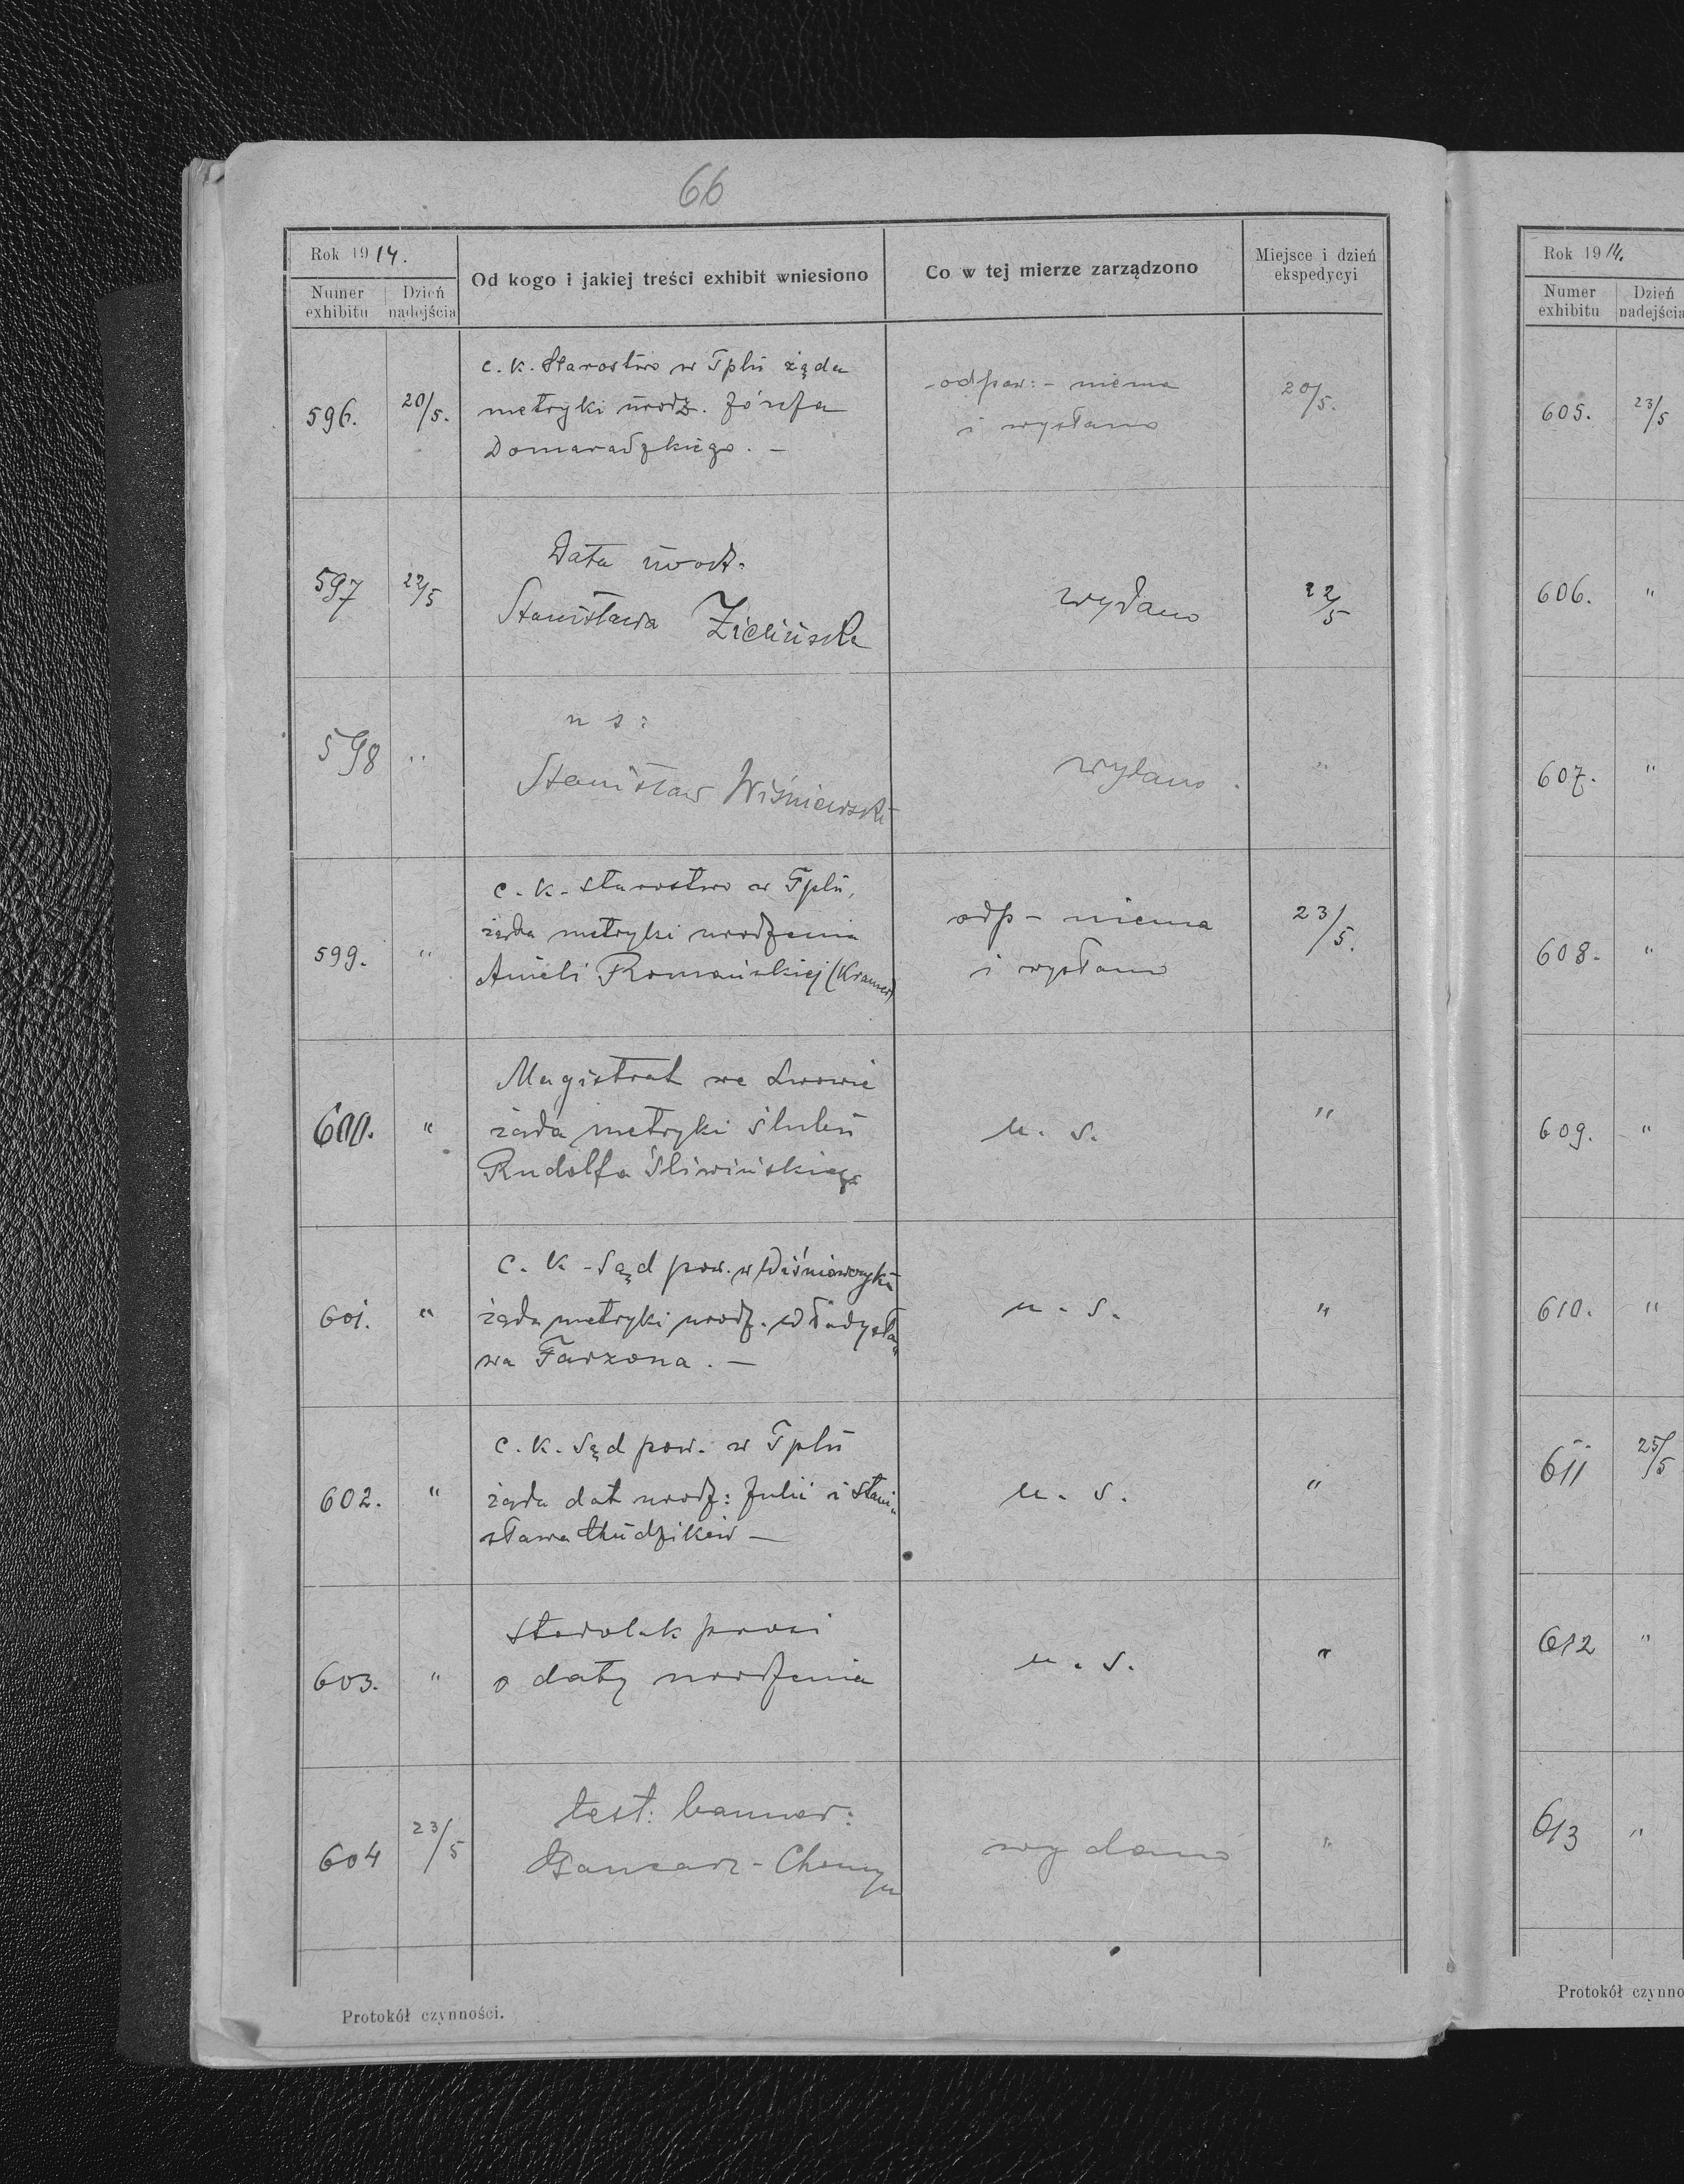 66
Rok 1914.
Numer exhibitu
Dzień nadejścia
Od kogo i jakiej treści exhibit wniesiono
Co w tej mierze zarządzono
Miejsce i dzień ekspedycyi
596. 20/5. c. k. Starostwo w Tplu żąda
metryki urodz. Józefa
Domaradzkiego. –
odpow: – niema
i wysłano
20/5.
597 22/5 Data urodz.
Stanisława Zielińska
wydano
22/5
598 " u s:
Stanisław Wiśniewski
wydano.
"
599. " c. k. starostwo w Tplu,
żąda metryki urodzenia
Anieli Romańskiej (Kramer)
odp – niema
i wysłano
23/5.
600. " Magistrat we Lwowie
żąda metryki ślubu
Rudolfa Śliwińskiego
u. s.
"
601. " C. K. Sąd pow. w Wiśniowczyku
żąda metryki urodz. Władysła
wa Farzona. –
u. s.
"
602. " C. K. Sąd pow. w Tplu
żąda dat urodz: Julii i Stani
sława
–
u. s.
"
603. " prosi
o datę urodzenia
u. s.
"
604 23/5 test: bannor:
wydano
"
Protokół czynności.
Rok 1914.
Numer exhibitu
Dzień nadejścia
605. 23/5
606. "
607. "
608. "
609. "
610. "
611 25/5
612 "
613 "
Protokół czynno